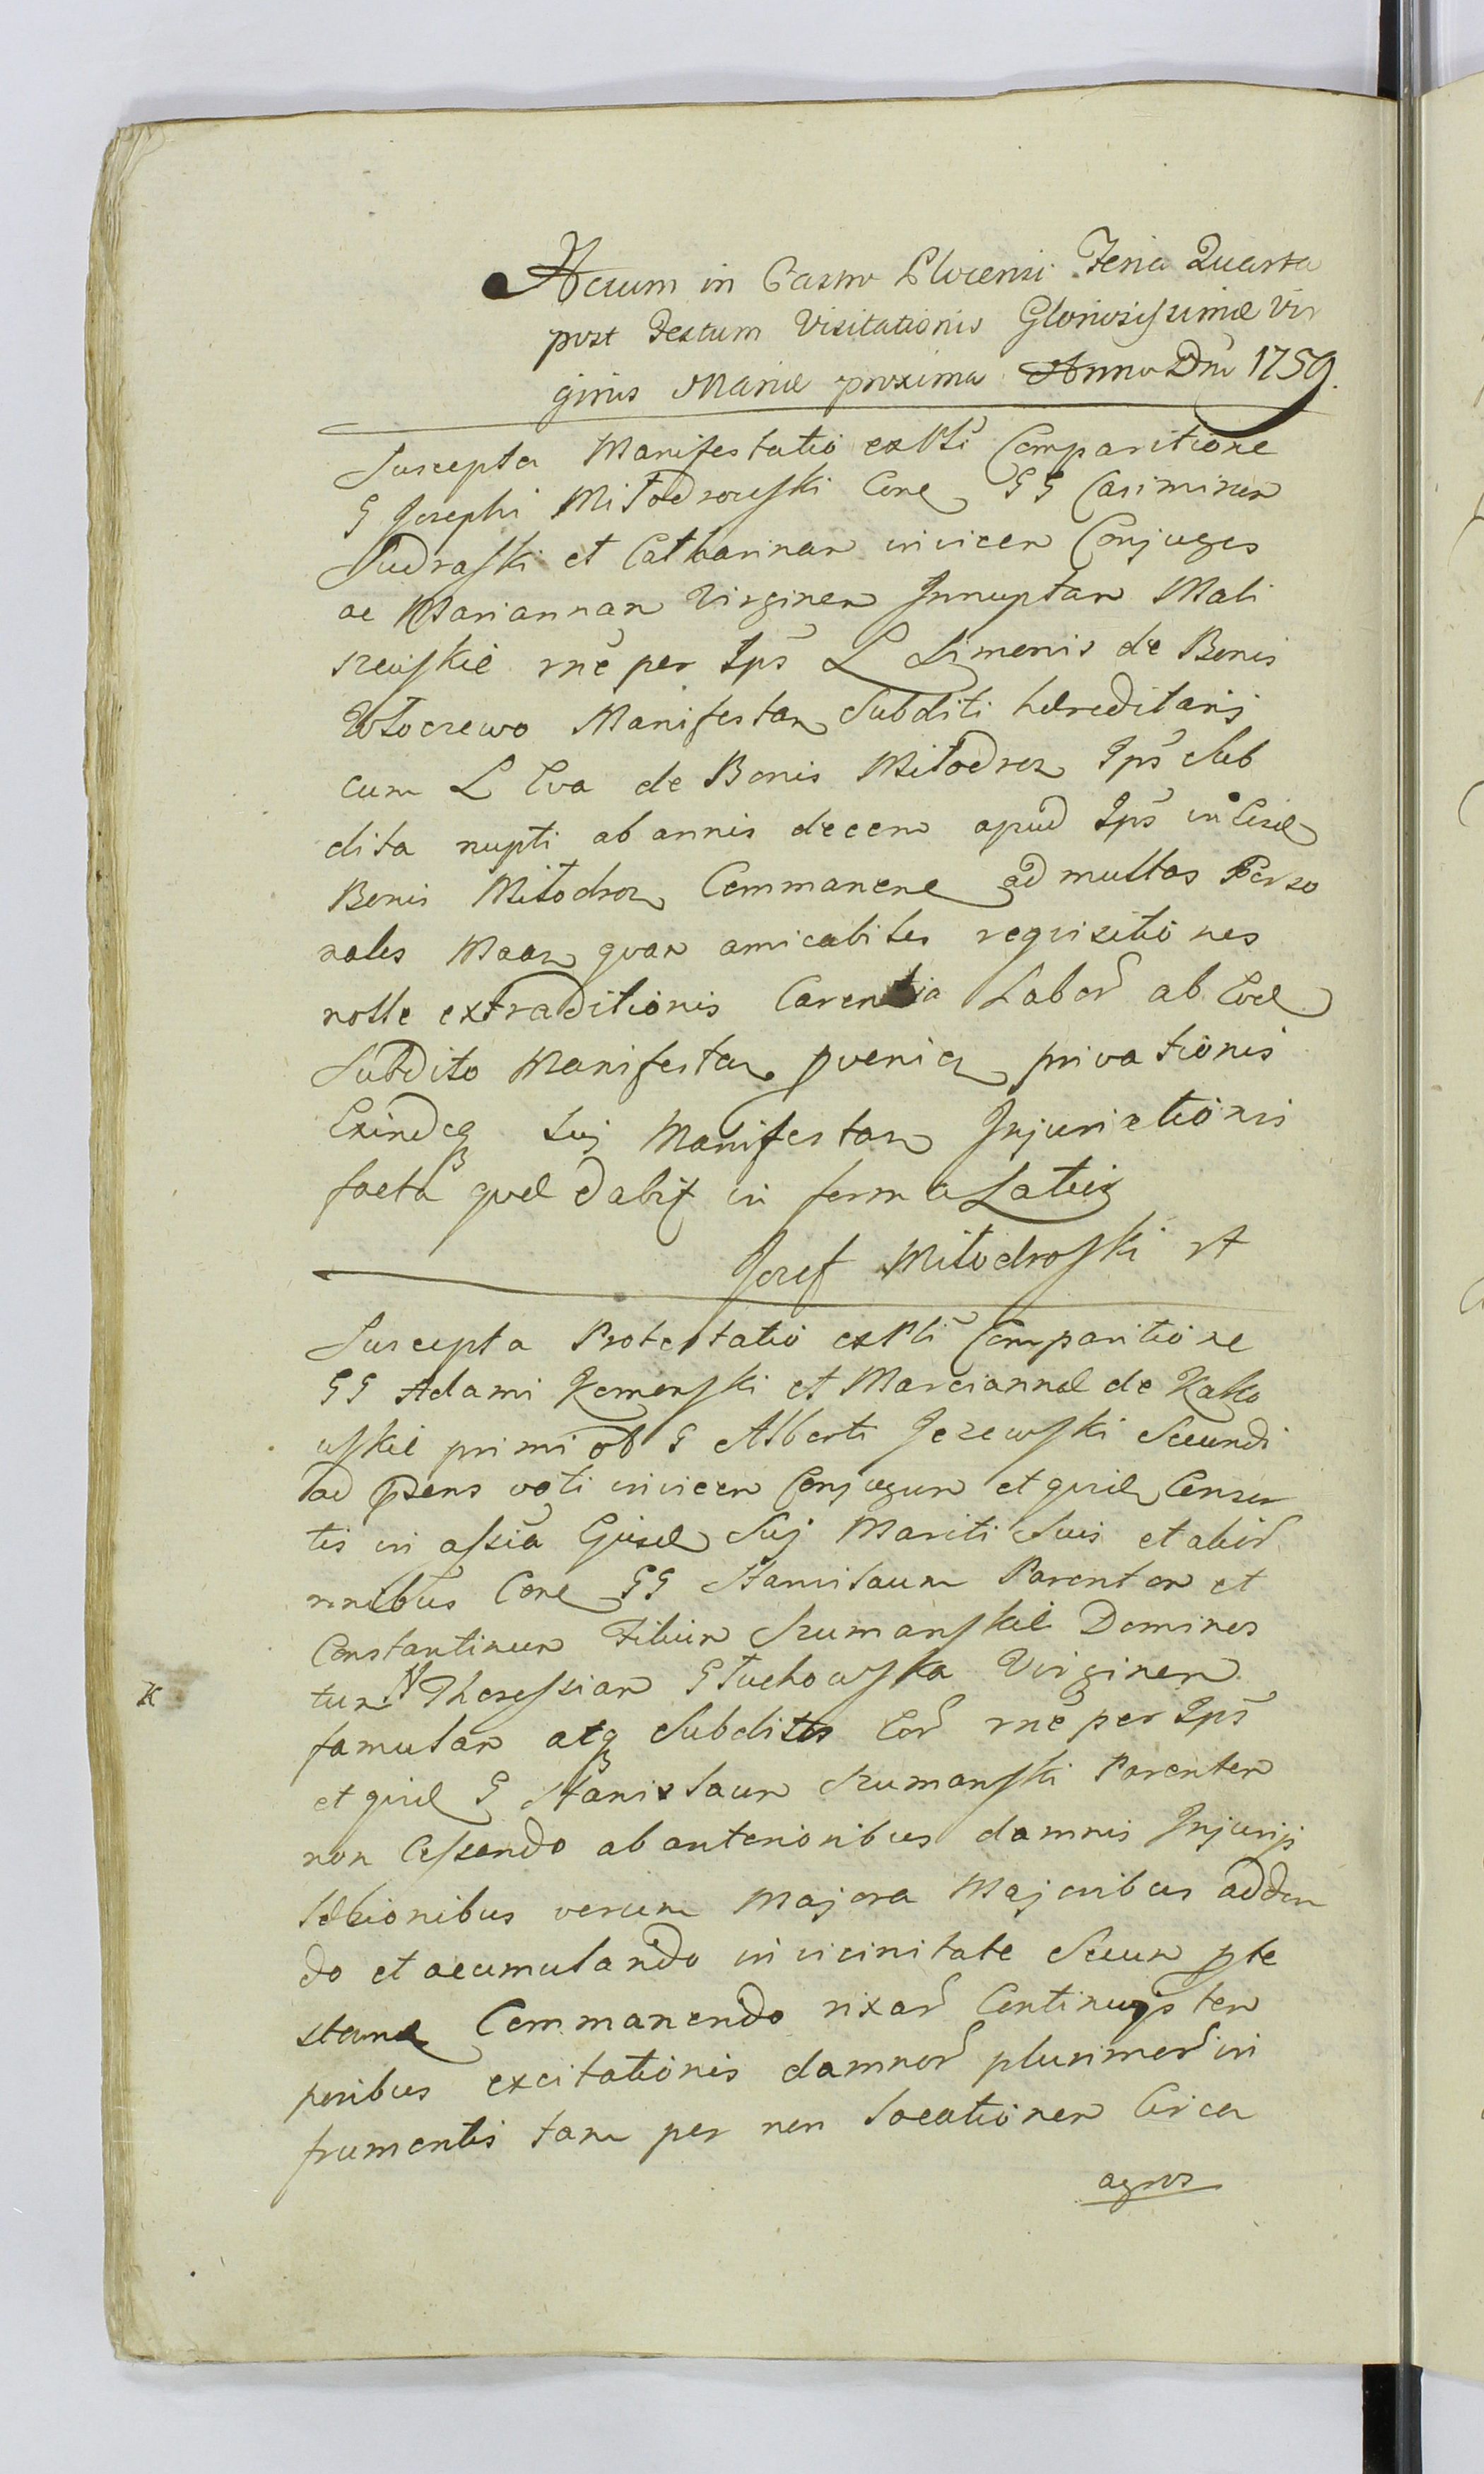 Actum in Castro Plocensi Feria Quarta
post Festum Visitationis Gloriosissimæ Vir
ginis Mariæ proxima Anno Dni 1759.
Suscepta Manifestatio ex Pli Comparitione
G Josephi Miłodrowski Cone GG Casimirum
Sudraski et Catharinam invicem Conjuges
ac Mariannam Virginem Innuptam Mali
szewskie rne per Ips L Simonis de Bonis
Włoczewo Manifestan Subditi hæreditarij
cum L Eva de Bonis Miłodroz Ips Sub
dita nupti ab annis decem apud Ips in Eisd
Bonis Miłodroz Commanene ad multas Perso
nales Maan quam amicabiles requisitiones
nolle extraditionis Carentia Labor ab Eod
Subdito Manifestan provenien privationis
Exindeq Suj Manifestan Injuriationis
facta quæ dabit in forma Latius
Jozef Miłodroski A
Suscepta Protestatio ex Pli Comparitione
GG Adami Komorski et Marciannæ de Kako
wskie primi ob G Alberti Jezewski Secundi
ad psens voti invicem Conjugum et quid Consor
tis in assia Ejusd Suj Mariti Suis et alior
nnibus Cone GG Stanislaum Parentem et
Constantinum Filium Szumanskie Dominos
tum N Theressiam Głuchowska Virginem
famulam atq Subditos Eor rne per Ips
et quid G Stanislaum Szumanski Parentem
non Cessando ab anterioribus damnis Injurijs
læsionibus verum Majora Majoribus adden
do et accumulando in vicinitate Secum pte
stane Commanendo rixar Continuis tem
poribus excitationis damnor plurimor in
frumentis tam per non locationem Circa
agros